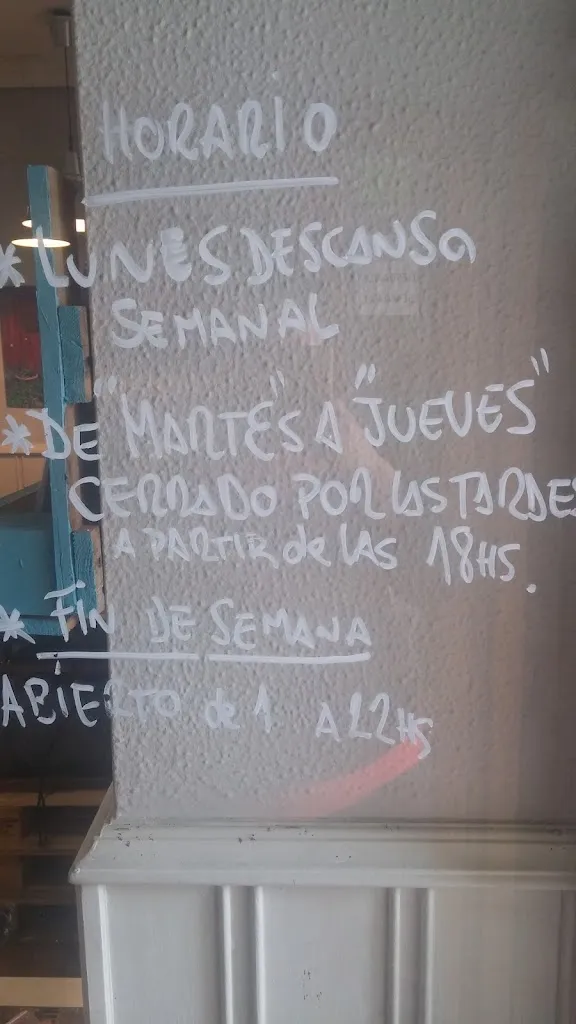 HORARIO
* LUNES DESCANSO
SEMANAL
* DE "MARTES" A "JUEVES"
CERRADO POR LAS TARDES
A PARTIR de LAS 18HS.
* FIN DE SEMANA
ABIERTO de 1 A 22HS